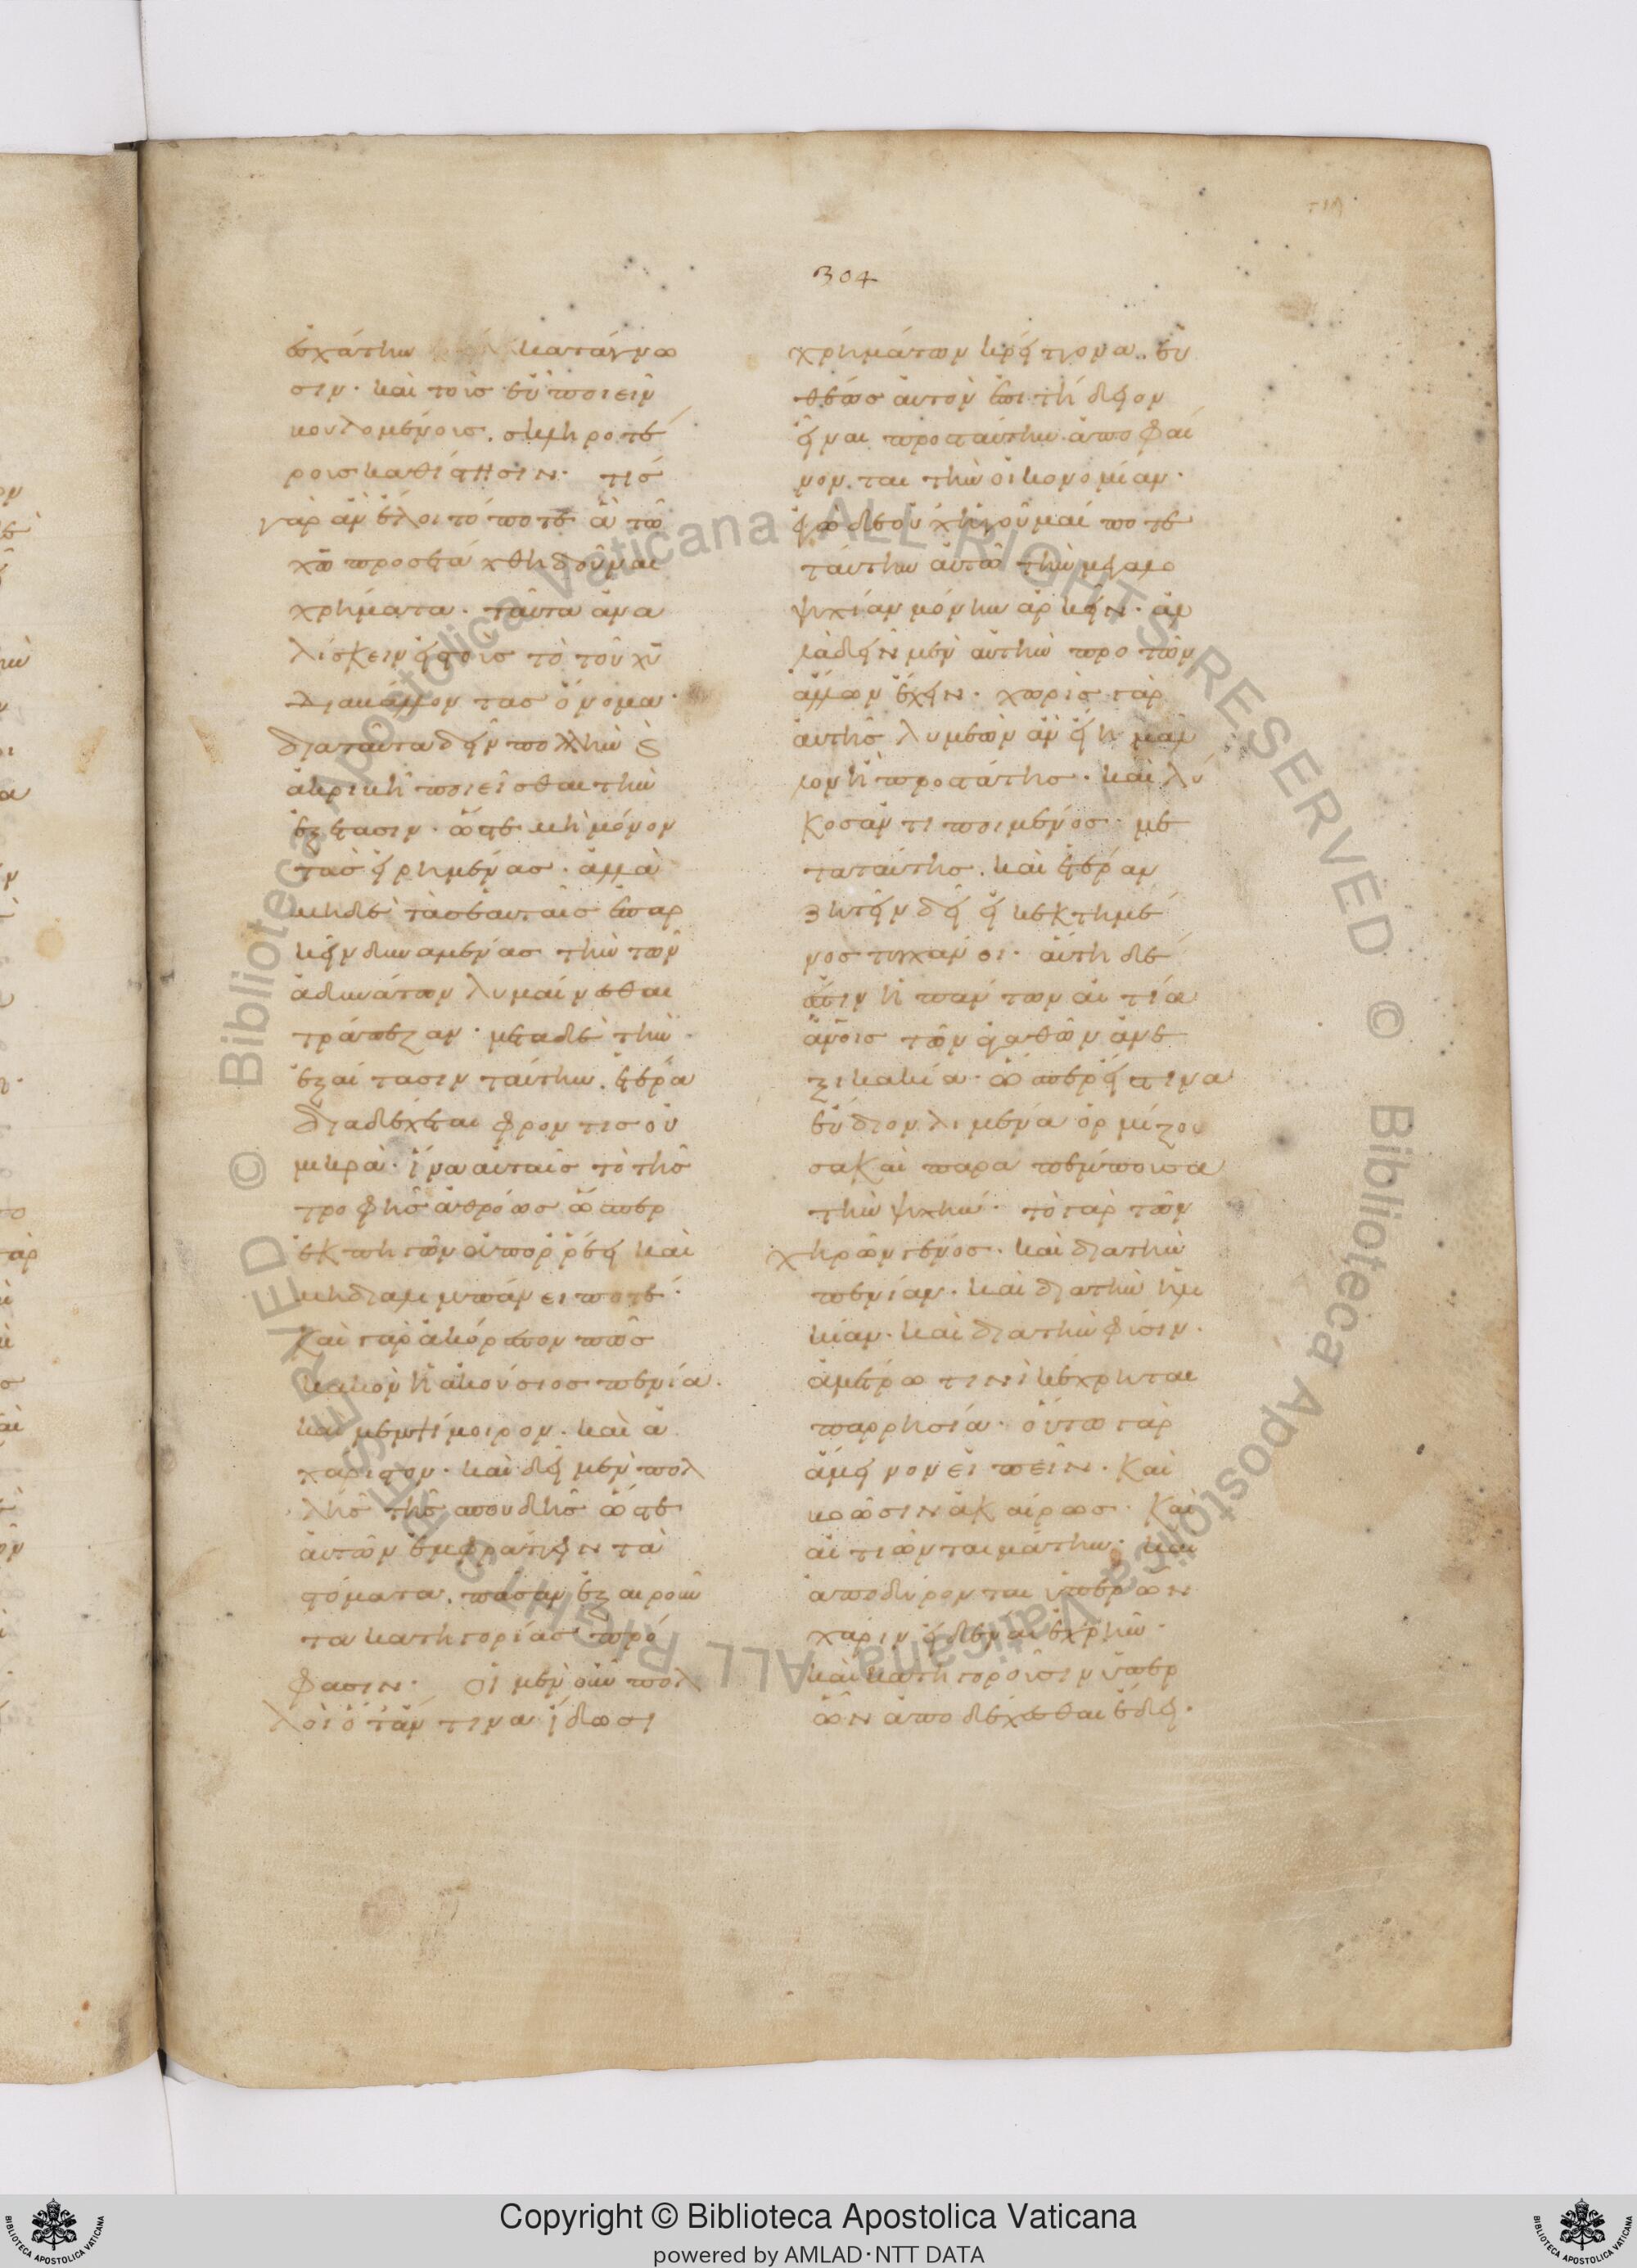 304
ἐσχάτην κατάγνω
σιν· καὶ τοῖς εὖ ποιεῖν
βουλομένοις, ὀκνηροτέ
ροις καθίστησιν· τίς
γὰρ ἂν ἕλοιτό ποτε ἃ τῶ
χῶ προσετάχθη δοῦναι
χρήματα· ταῦτα ἀνα
λίσκειν εἰς τοὺς τὸ τοῦ χῦ
διαβάλλοντας ὄνομα·
διαταῦτα δεῖν πολλὴν ϛ
ἀκριβῆ ποιεῖσθαι τὴν
ἐξέτασιν· ὥστε μὴ μόνον
τὰς εἰρημένας· ἀλλὰ
μηδὲ τὰς ἑαυταῖς ἐπαρ
κεῖν δυναμένας τὴν τῶν
ἀδυνάτων λυμαίνεσθαι
τράπεζαν· μετὰ δὲ τὴν
ἐξέτασιν ταύτην, ἑτέρα
διαδέχεται φροντὶς οὐ
μικρὰ· ἵνα αὐταῖς τὸ τῆς
τροφῆς ἀθρόως ὥσπερ
ἐκ πηγῶν ἐπιρρέει καὶ
μὴ διαλιμπάνει ποτέ·
καὶ γὰρ ἀκόρεστόν πως
κακὸν ἡ ἀκούσιος πενία·
καὶ μεμψίμοιρον· καὶ ἀ
χάριστον· καὶ δεῖ μὲν πολ
λῆς τῆς σπουδῆς ὥστε
αὐτῶν ἐμφράττειν τὰ
στόματα, πᾶσαν ἐξαιροῦν
τα κατηγορίας πρό
φασιν· οἱ μὲν οὖν πολ
λοὶ ὅταν τινὰ ἴδωσι
χρημάτων κρείττονα· εὐ
θέως αὐτὸν ἐπιτήδειον
εἶναι πρὸς ταύτην ἀποφαί
νονται τὴν οἰκονομίαν·
ἐγὼ δὲ οὐχ ἡγοῦμαί ποτε
ταύτην αὐτῶ τὴν μεγαλο
ψυχίαν μόνην ἀρκεῖν· ἀλ
λὰ δεῖν μὲν αὐτὴν πρὸ τῶν
ἄλλων ἔχειν· χωρὶς γὰρ
αὐτῆς λυμεὼν ἂν εἴη μᾶλ
λον ἢ προστάτης· καὶ λύ
κος ἀντὶ ποιμένος· με
τὰ ταύτης, καὶ ἑτέραν
ζητεῖν δεῖ εἰ κεκτημέ
νος τυγχάνοι· αὕτη δέ
ἐστιν ἡ πάντων αἰτία
ἀνοις τῶν ἀγαθῶν ἀνε
ξικακία· ὥσπερ εἴς τινα
εὔδιον λιμένα ὁρμίζου
σα καὶ παραπέμπουσα
τὴν ψυχήν· τὸ γὰρ τῶν
χηρῶν γένος· καὶ διὰ τὴν
πενίαν· καὶ διὰ τὴν ἡλι
κίαν· καὶ διὰ τὴν φύσιν·
ἀμέτρω τινὶ κέχρηται
παρρησία· οὕτω γὰρ
ἄμεινον εἰπεῖν· καὶ
βοῶσιν ἀκαίρως· καὶ
αἰτιῶνται μάτην· καὶ
ἀποδύρονται ὑπὲρ ὧν
χάριν εἰδέναι ἐχρῆν·
καὶ κατηγοροῦσιν ὑπὲρ
ὧν ἀποδέχεσθαι ἔδει·
Copyright © Biblioteca Apostolica Vaticana
powered by AMLAD·NTT DATA